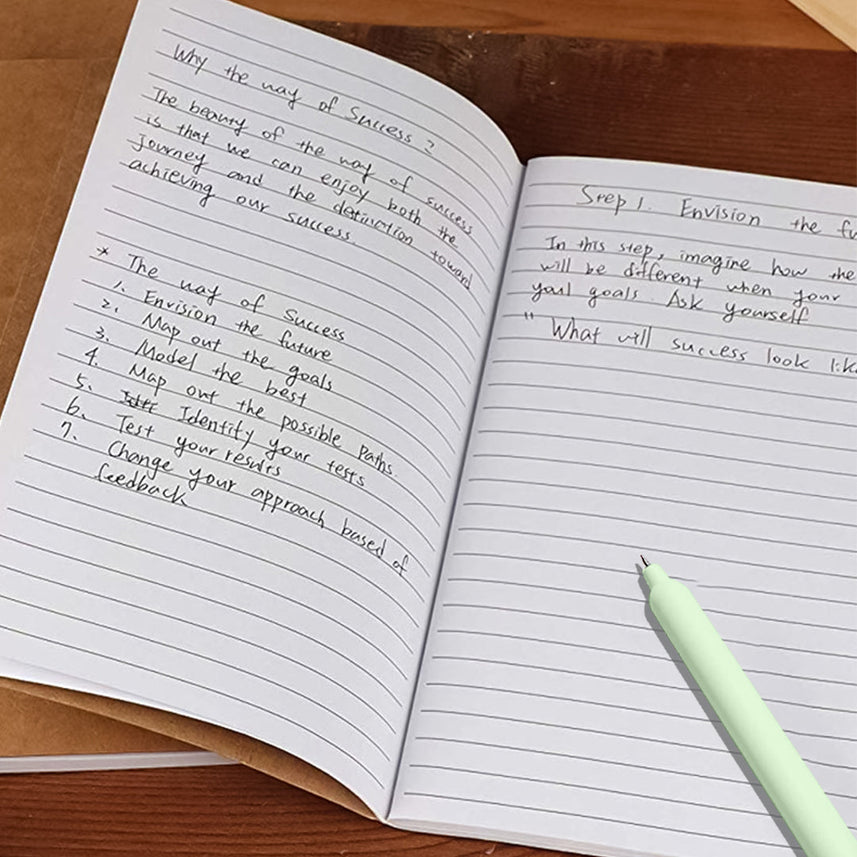 Why the way of Success?
The beauty of the way of success
is that we can enjoy both the
Journey and the detinction toward
achieving our success.
* The way of Success
1. Envision the future
2. Map out the goals
3. Model the best
4. Map out the possible paths.
5. Identify your tests
6. Test your results
7. Change your approach based of
feedback
Step 1. Envision the fu
In this step, imagine how the
will be different when your
your goals. Ask yourself
" What will success look like